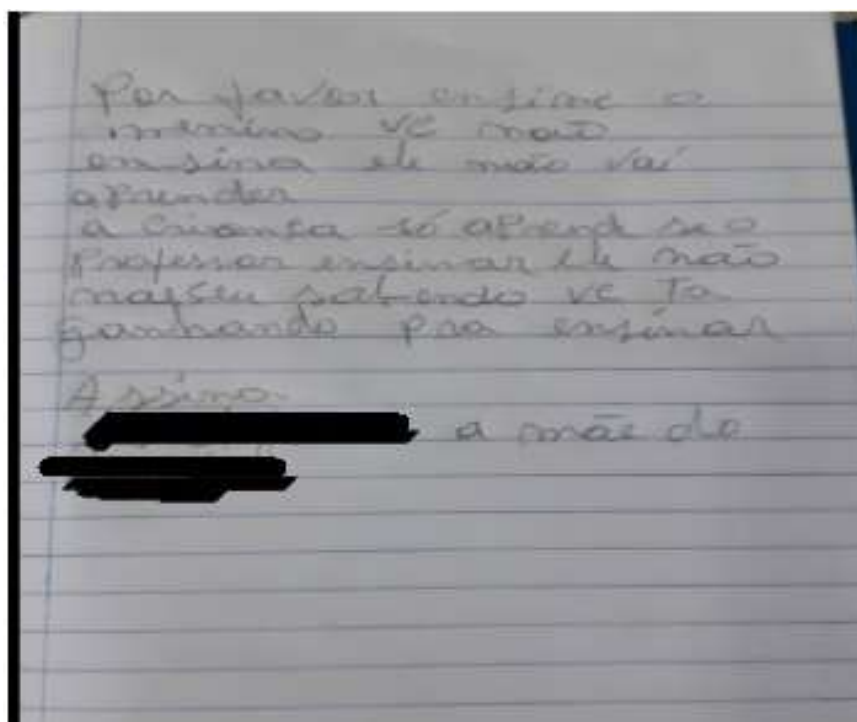 Por favor ensine o
menino vc não
ensina ele não vai
aprender
a criansa só aprend se o
Professor ensinar ele não
najseu sabendo vc ta
ganhando pra ensinar
Assino
a mãe do